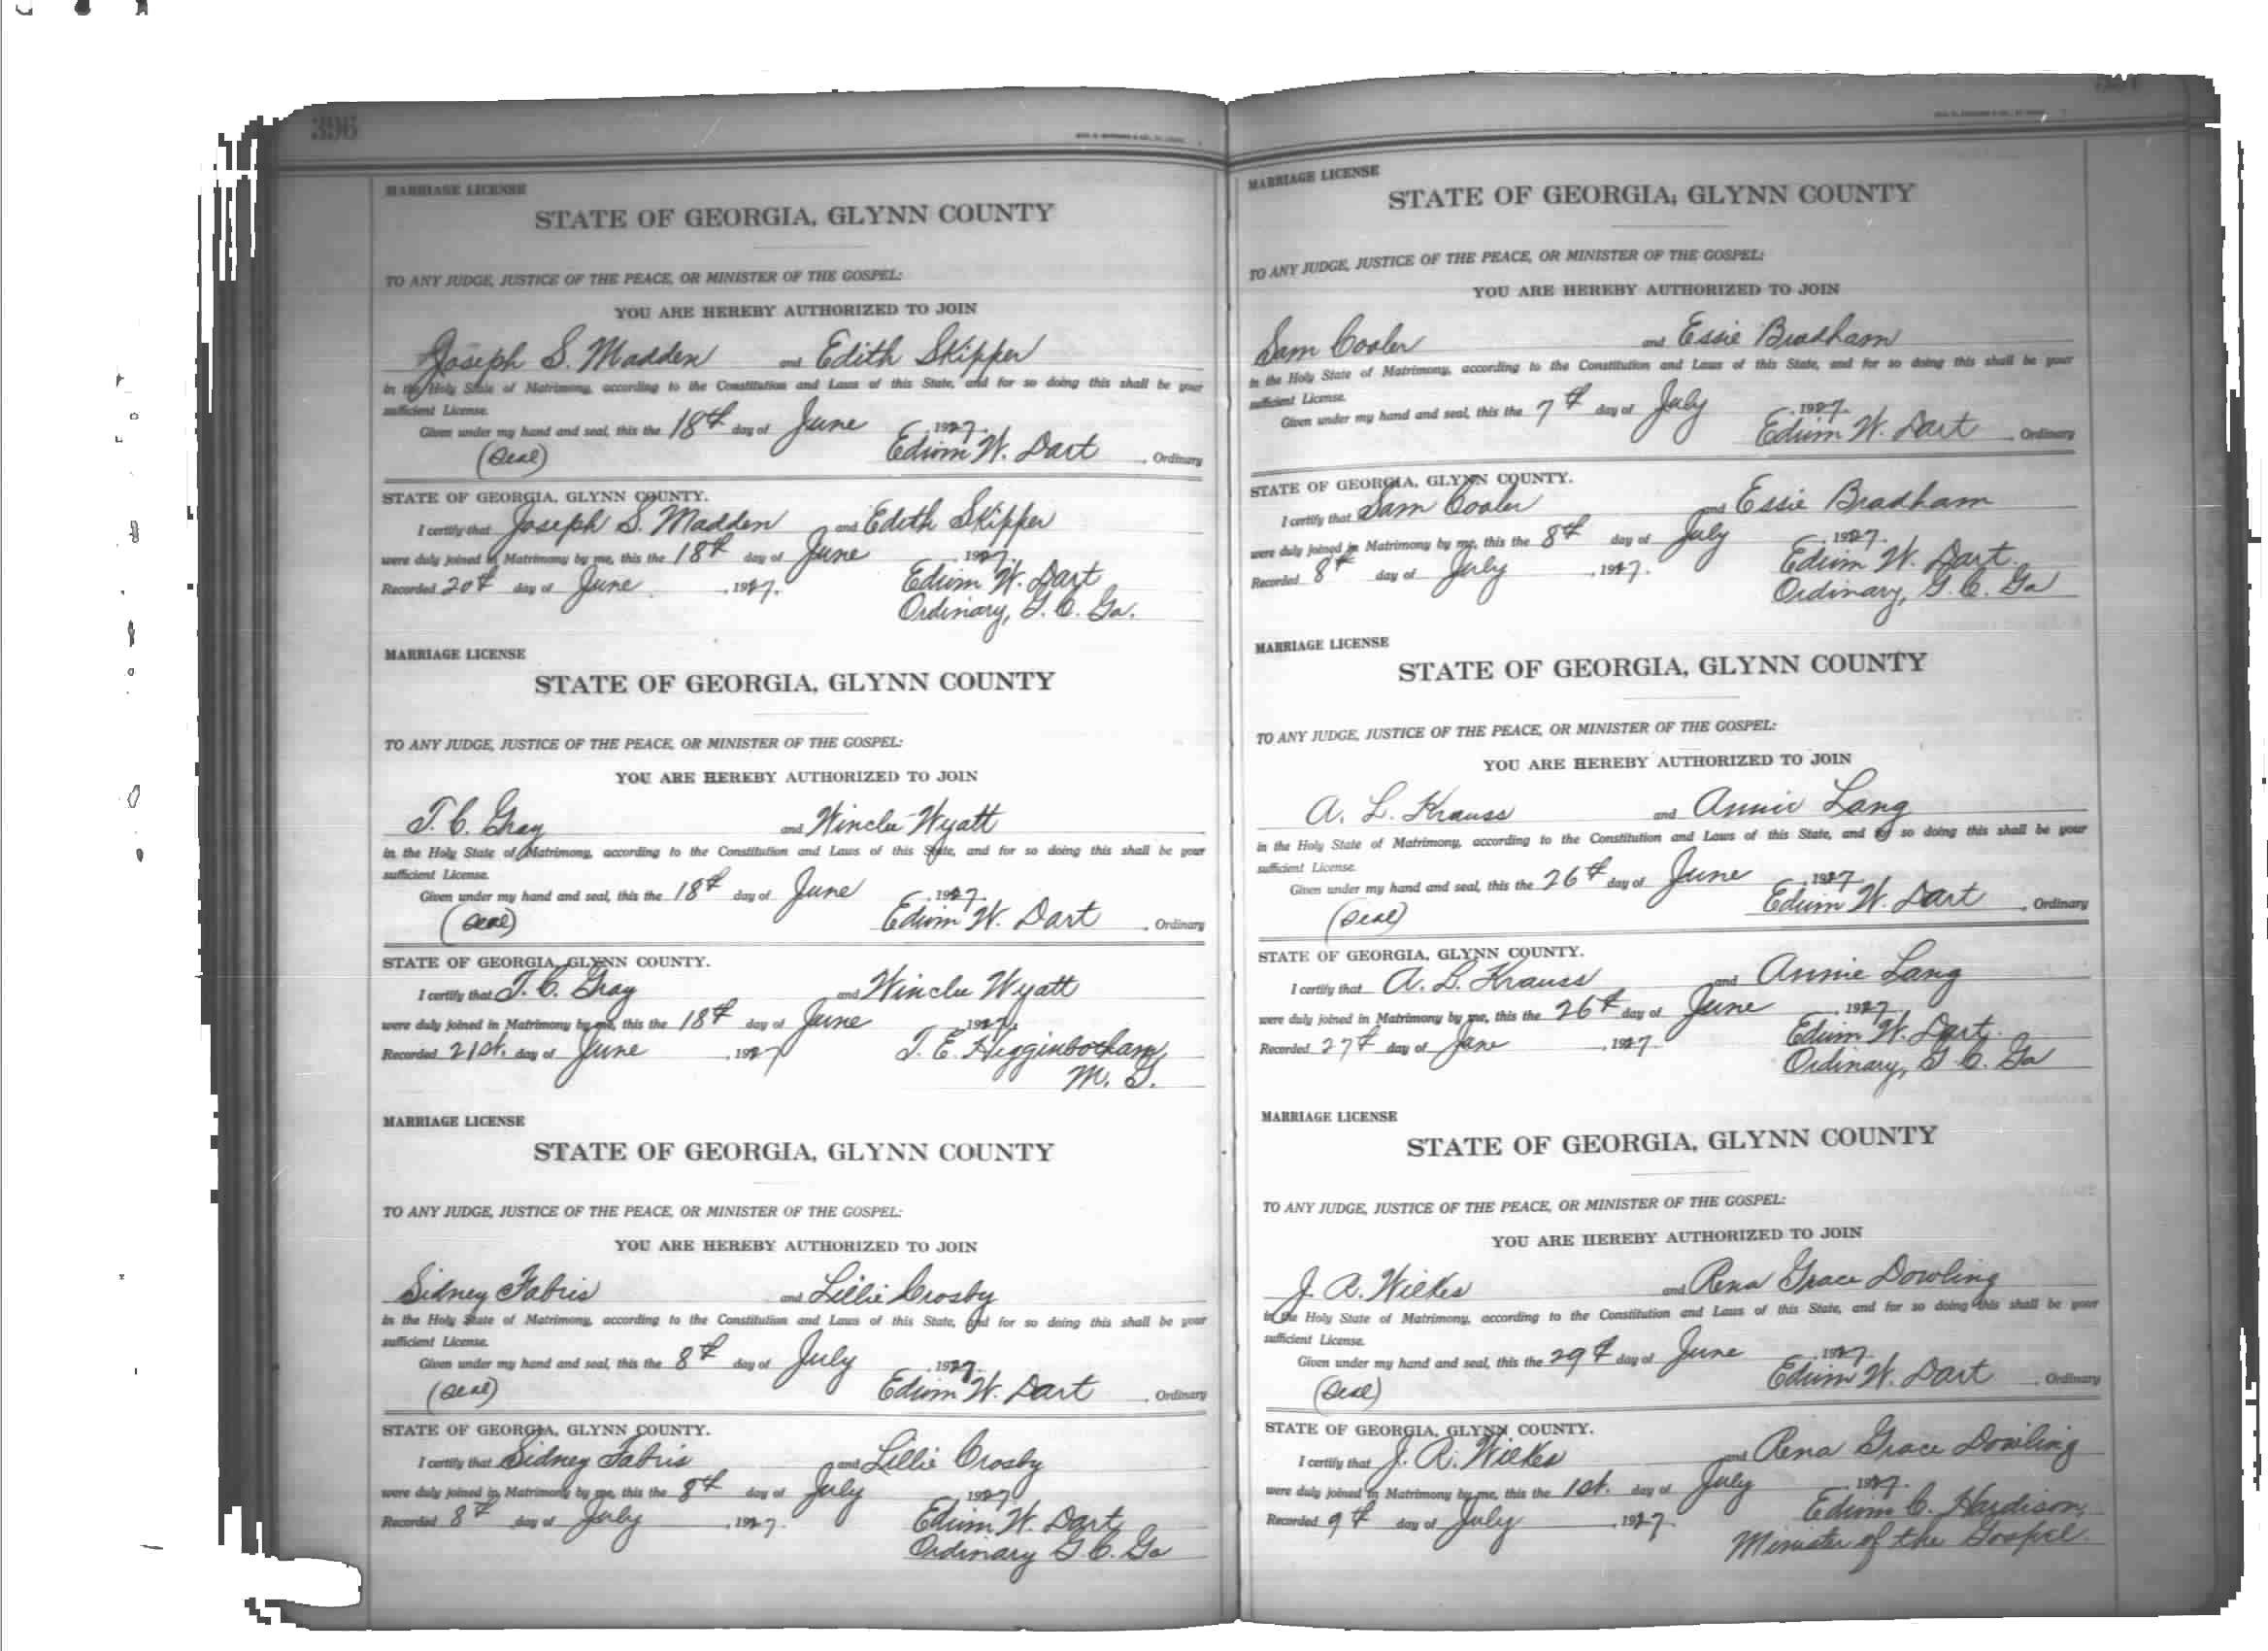 396
MARRIAGE LICENSE
STATE OF GEORGIA, GLYNN COUNTY
TO ANY JUDGE, JUSTICE OF THE PEACE, OR MINISTER OF THE GOSPEL:
YOU ARE HEREBY AUTHORIZED TO JOIN
Joseph S. Madden and Edith Skipper
in the Holy State of Matrimony, according to the Constitution and Laws of this State, and for so doing this shall be your
sufficient License.
Given under my hand and seal, this the 18th day of June 1927.
(Seal) Edwin W. Dart , Ordinary
STATE OF GEORGIA, GLYNN COUNTY.
I certify that Joseph S. Madden and Edith Skipper
were duly joined in Matrimony by me, this the 18th day of June 1927.
Recorded 20th day of June , 1927. Edwin W. Dart
Ordinary, G. C. Ga.
MARRIAGE LICENSE
STATE OF GEORGIA, GLYNN COUNTY
TO ANY JUDGE, JUSTICE OF THE PEACE, OR MINISTER OF THE GOSPEL:
YOU ARE HEREBY AUTHORIZED TO JOIN
T. C. Gray and Wyatt
in the Holy State of Matrimony, according to the Constitution and Laws of this State, and for so doing this shall be your
sufficient License.
Given under my hand and seal, this the 18th day of June , 1927.
(Seal) Edwin W. Dart , Ordinary
STATE OF GEORGIA, GLYNN COUNTY.
I certify that T. C. Gray and Wyatt
were duly joined in Matrimony by me, this the 18th day of June 1927.
Recorded 21st. day of June , 1927 T. E. Higginbotham,
M. G.
MARRIAGE LICENSE
STATE OF GEORGIA, GLYNN COUNTY
TO ANY JUDGE, JUSTICE OF THE PEACE, OR MINISTER OF THE GOSPEL:
YOU ARE HEREBY AUTHORIZED TO JOIN
Sidney Fabris and Lillie Crosby
in the Holy State of Matrimony, according to the Constitution and Laws of this State, and for so doing this shall be your
sufficient License.
Given under my hand and seal, this the 8th day of July , 1927.
(Seal) Edwin W. Dart , Ordinary
STATE OF GEORGIA, GLYNN COUNTY.
I certify that Sidney Fabris and Lillie Crosby
were duly joined in Matrimony by me, this the 8th day of July , 1927
Recorded 8th day of July , 1927. Edwin W. Dart
Ordinary G. C. Ga
MARRIAGE LICENSE
STATE OF GEORGIA, GLYNN COUNTY
TO ANY JUDGE, JUSTICE OF THE PEACE, OR MINISTER OF THE GOSPEL:
YOU ARE HEREBY AUTHORIZED TO JOIN
Sam Cooler and Essie Bradham
in the Holy State of Matrimony, according to the Constitution and Laws of this State, and for so doing this shall be your
sufficient License.
Given under my hand and seal, this the 7th day of July , 1927.
Edwin W. Dart , Ordinary
STATE OF GEORGIA, GLYNN COUNTY.
I certify that Sam Cooler and Essie Bradham
were duly joined in Matrimony by me, this the 8th day of July , 1927.
Recorded 8th day of July , 1927. Edwin W. Dart.
Ordinary, G. C. Ga
MARRIAGE LICENSE
STATE OF GEORGIA, GLYNN COUNTY
TO ANY JUDGE, JUSTICE OF THE PEACE, OR MINISTER OF THE GOSPEL:
YOU ARE HEREBY AUTHORIZED TO JOIN
A. L. Krauss and Annie Lang
in the Holy State of Matrimony, according to the Constitution and Laws of this State, and for so doing this shall be your
sufficient License.
Given under my hand and seal, this the 26th day of June , 1927
(Seal) Edwin W. Dart , Ordinary
STATE OF GEORGIA, GLYNN COUNTY.
I certify that A. L. Krauss and Annie Lang
were duly joined in Matrimony by me, this the 26th day of June , 1927
Recorded 27th day of June , 1927. Edwin W. Dart.
Ordinary, G. C. Ga
MARRIAGE LICENSE
STATE OF GEORGIA, GLYNN COUNTY
TO ANY JUDGE, JUSTICE OF THE PEACE, OR MINISTER OF THE GOSPEL:
YOU ARE HEREBY AUTHORIZED TO JOIN
J. R. Wilkes and Rena Grace Dowling
in the Holy State of Matrimony, according to the Constitution and Laws of this State, and for so doing this shall be your
sufficient License.
Given under my hand and seal, this the 29th day of June , 1927.
(Seal) Edwin W. Dart , Ordinary
STATE OF GEORGIA, GLYNN COUNTY.
I certify that J. R. Wilkes and Rena Grace Dowling
were duly joined in Matrimony by me, this the 1st. day of July , 1927.
Recorded 9th day of July , 1927. Edwin C. Hardison,
Minister of the Gospel.